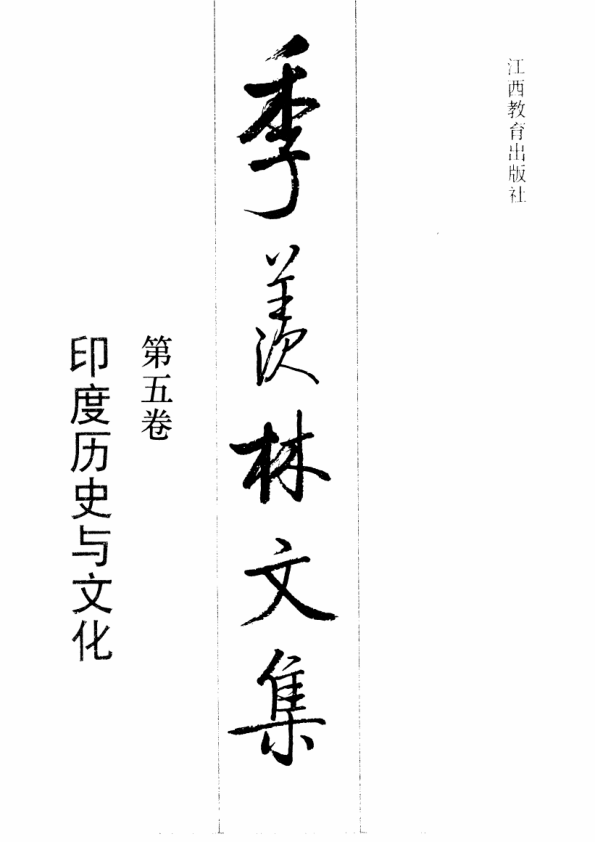 江西教育出版社
季羡林文集
第五卷
印度历史与文化